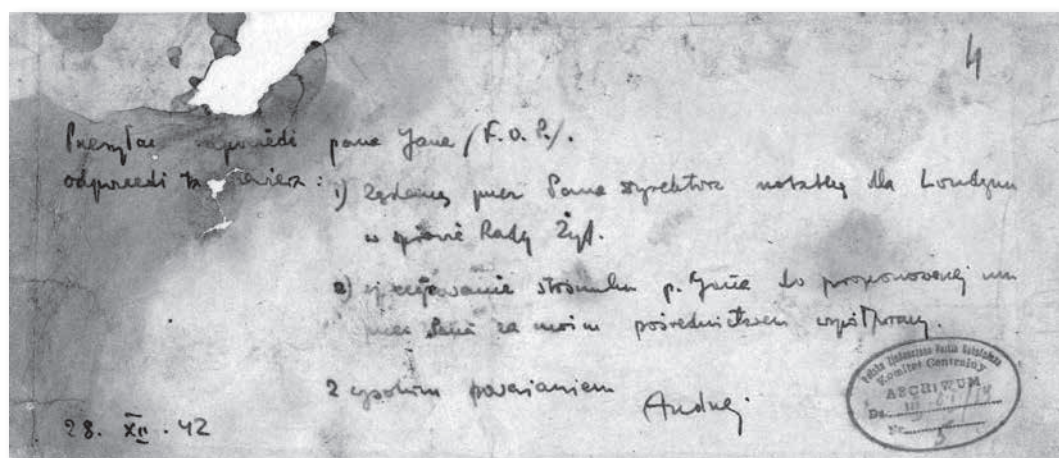 4
Przesyłam odpowiedź pana Jana /F.O.P./.
odpowiedź ta zawiera: 1) żądaną przez Pana Dyrektora notatkę dla Londynu
w sprawie Rady Żyd.
2) sprecyzowanie stosunku p. Jana do proponowanej mu
przez Pana za moim pośrednictwem współpracy.
Z wysokim poważaniem
Andrzej
28. XII. 42
Polska Zjednoczona Partia Robotnicza
Komitet Centralny
ARCHIWUM
Dz.
Nr. 5